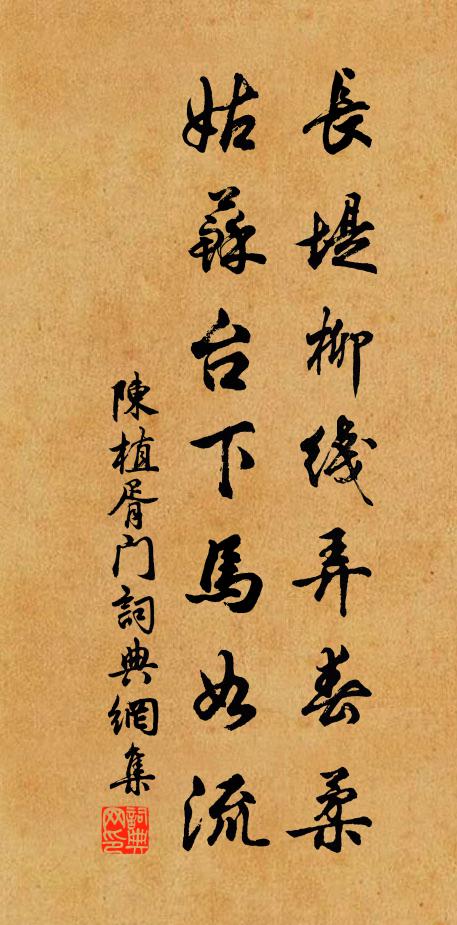 長堤柳綫弄春柔
姑蘇台下馬如流
陳植胥門詞典網集
詞典网印